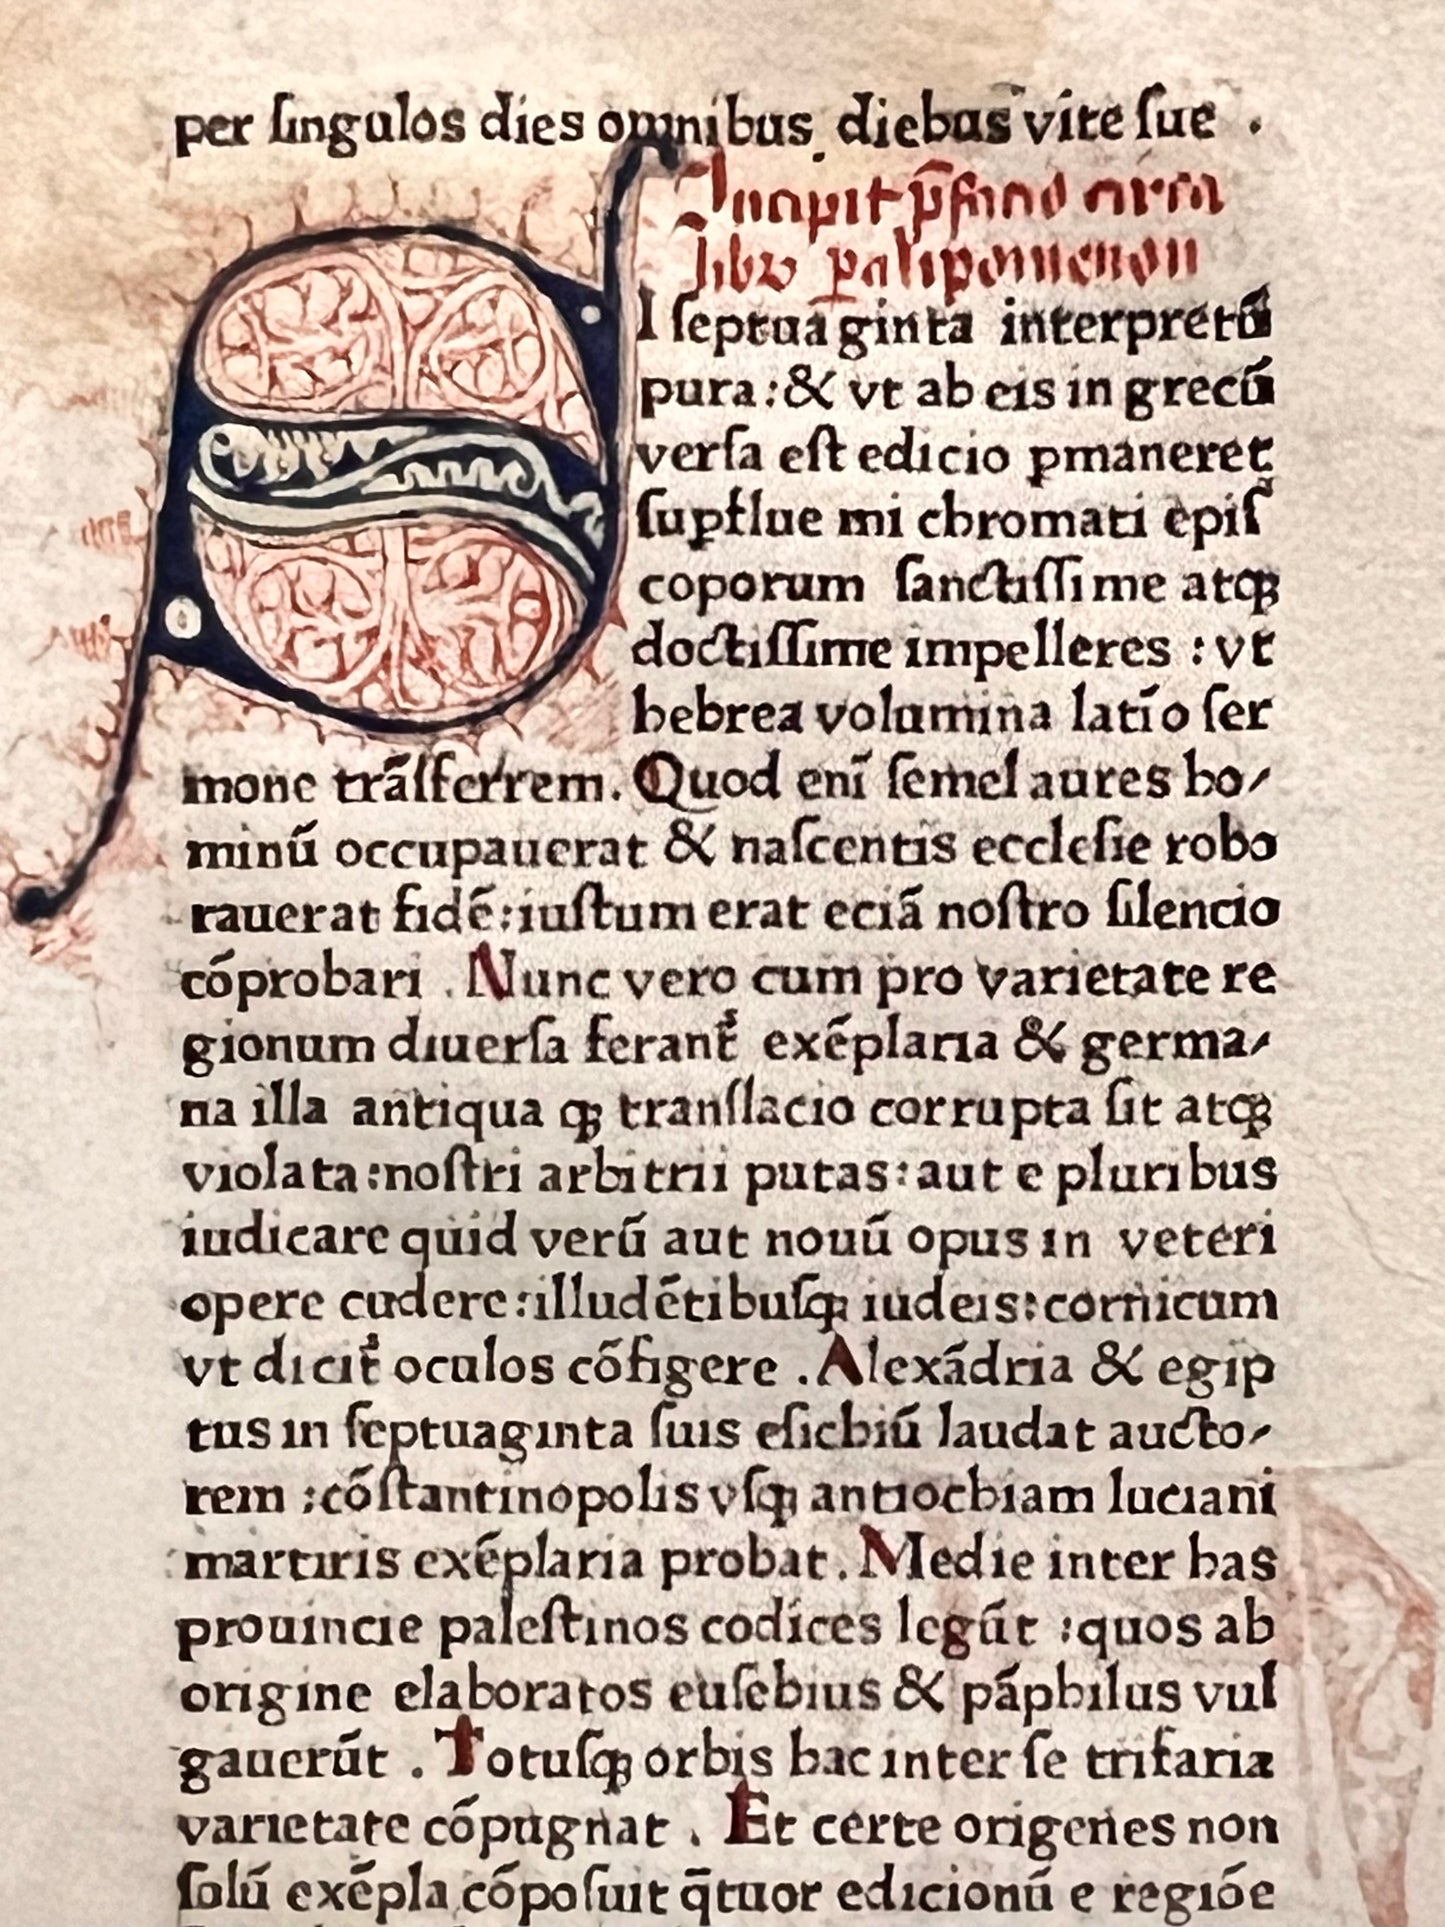 per ſingulos dies omnibus diebus vite ſue .
Incipit p̄facio circa
libꝝ ꝑalipomenon
SI ſeptuaginta interpretū
pura : & vt ab eis in grecū
verſa eſt edicio ꝑmaneret
ſuꝑflue mi chromati epiſ
coporum ſanctiſſime atqꝫ
doctiſſime impelleres : vt
hebrea volumina latīo ſer
mone trāſferrem. Quod enī ſemel aures ho/
minū occupauerat & naſcentis eccleſie robo
rauerat fidē : iuſtum erat eciā noſtro ſilencio
cōprobari . Nunc vero cum pro varietate re
gionum diuerſa ferant᷑ exēplaria & germa/
na illa antiqua qꝫ tranſlacio corrupta ſit atqꝫ
violata : noſtri arbitrii putas : aut e pluribus
iudicare quid verū aut nouū opus in veteri
opere cudere : illudētibuſqꝫ iudeis : cornicum
vt dicit᷑ oculos cōfigere . Alexādria & egip
tus in ſeptuaginta ſuis eſichiū laudat aucto/
rem : cōſtantinopolis vſqꝫ antiochiam luciani
martiris exēplaria probat . Medie inter has
prouincie paleſtinos codices legūt : quos ab
origine elaboratos euſebius & pāphilus vul
gauerūt . Totuſqꝫ orbis hac inter ſe trifaria
varietate cōpugnat . Et certe origenes non
ſolū exēpla cōpoſuit q̄tuor edicionū e regiōe